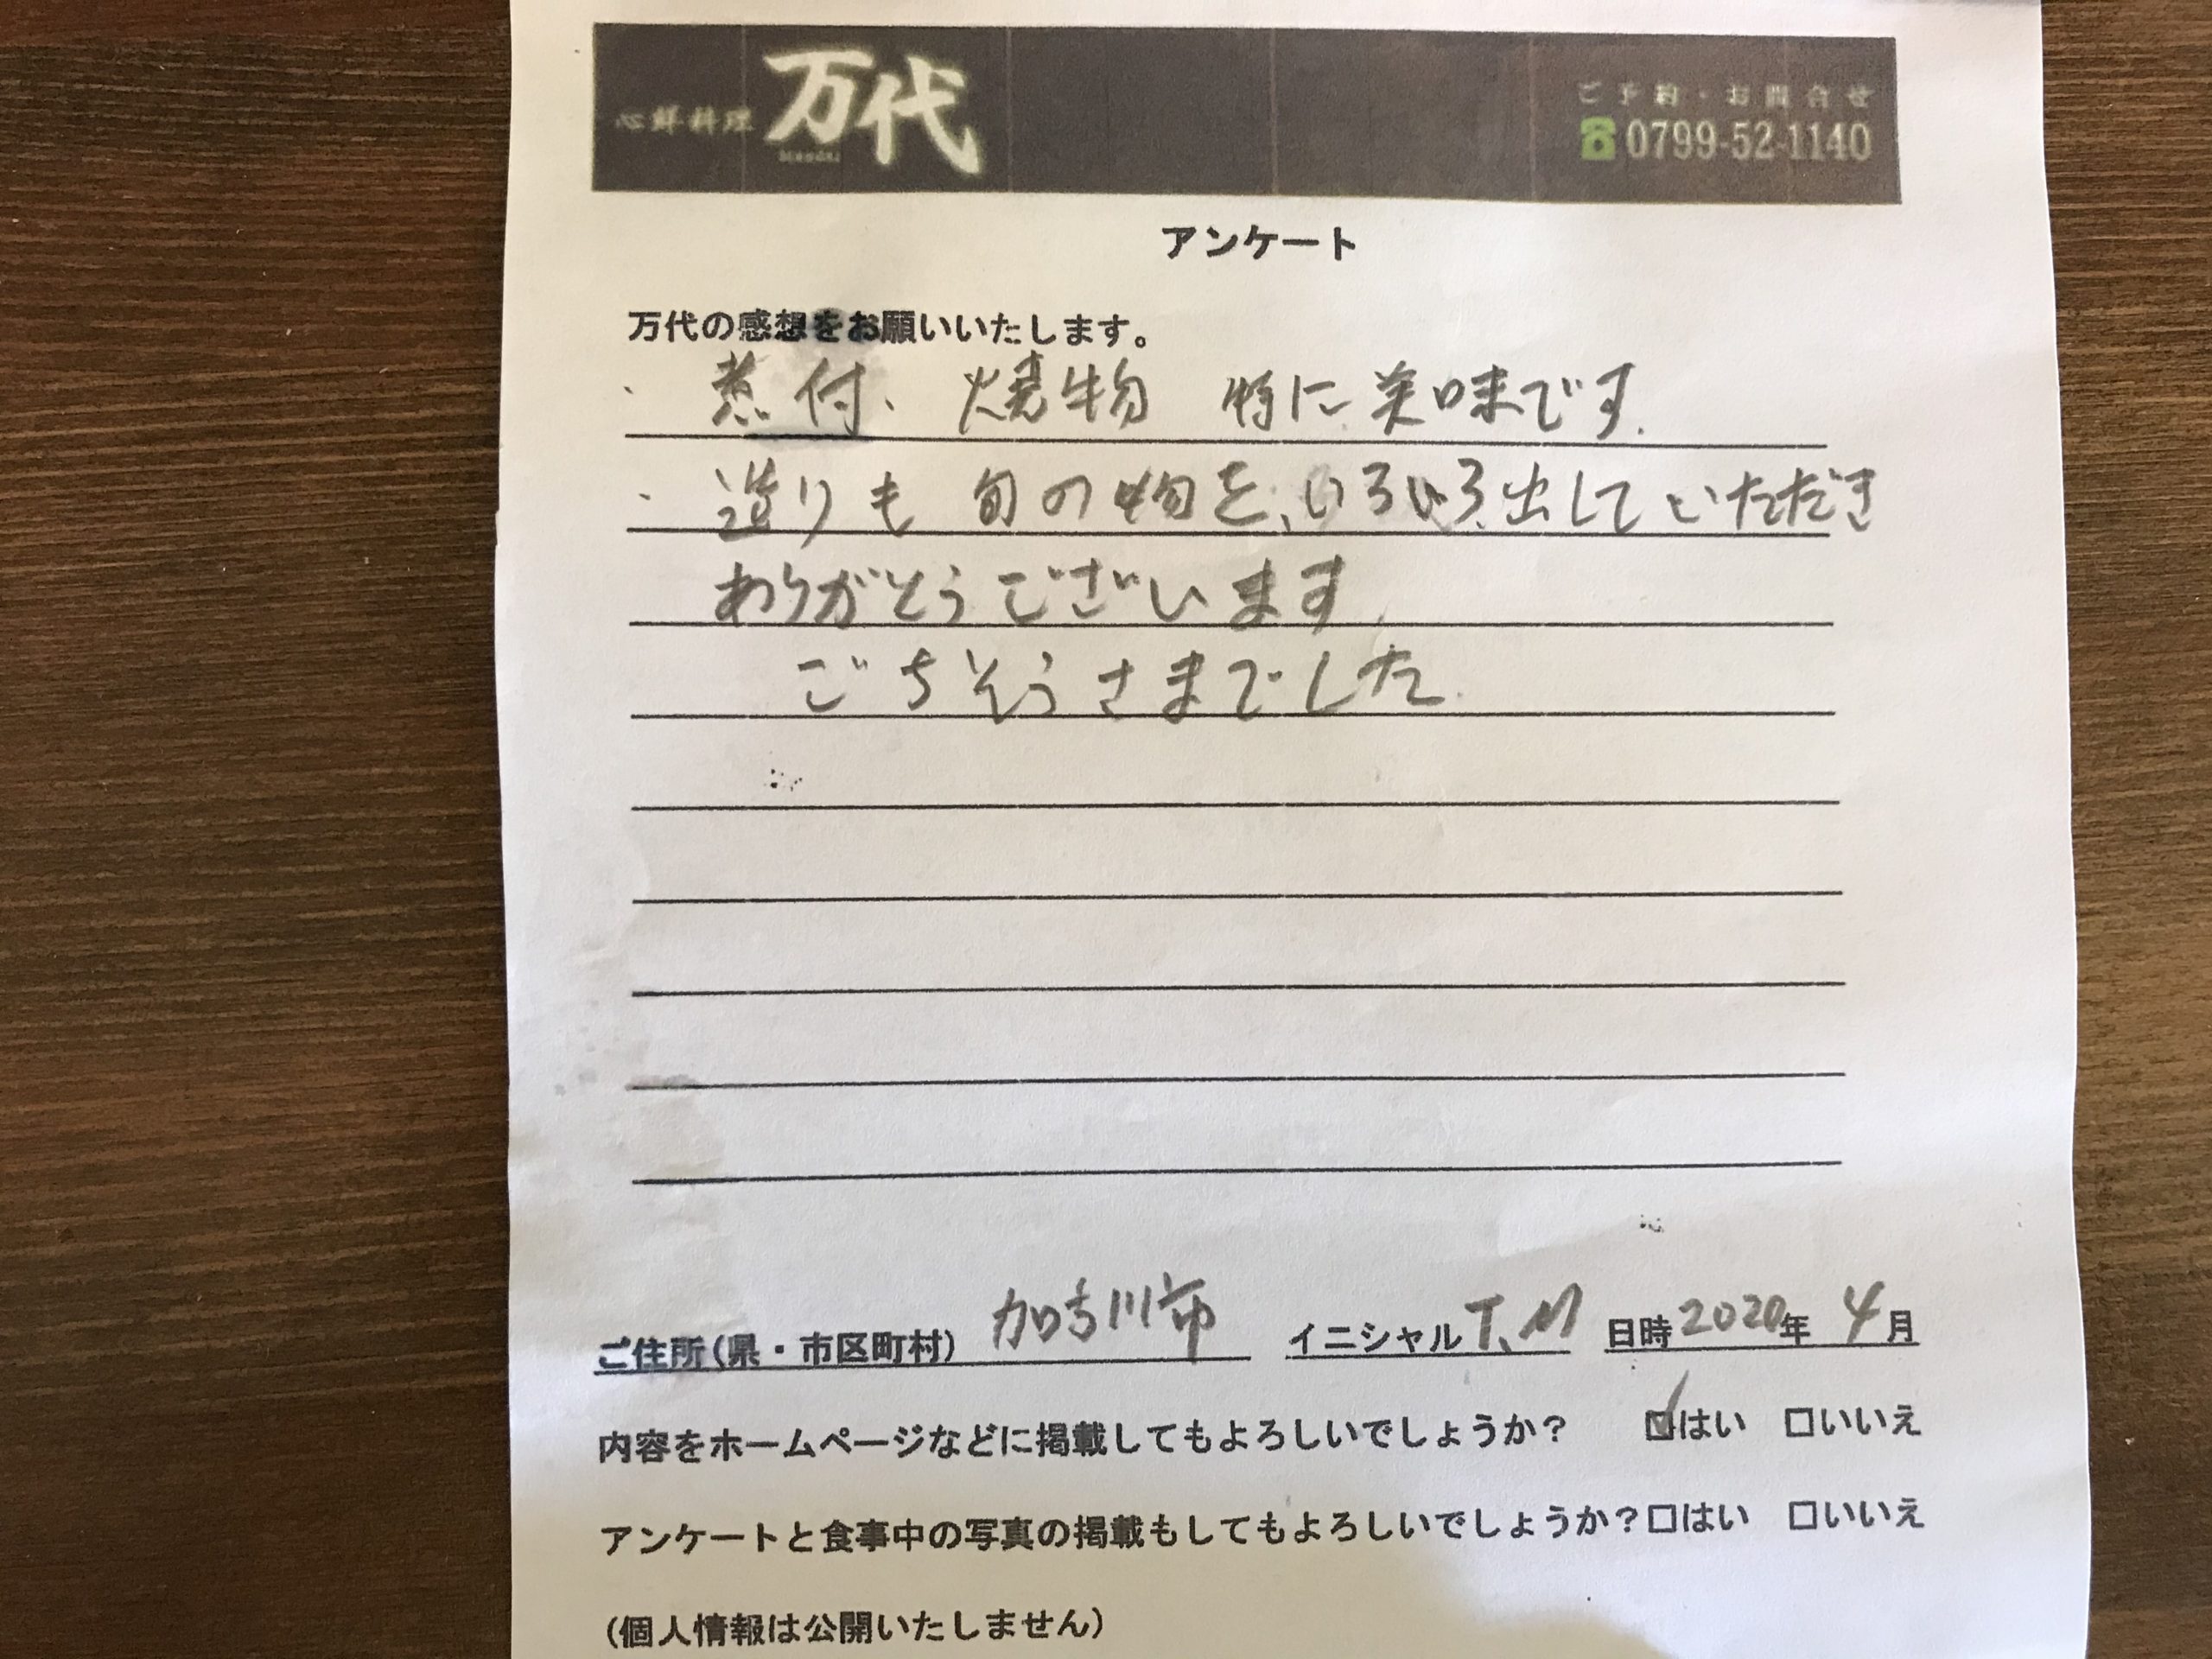 心鮮料理 万代
ご予約・お問合せ
☎0799-52-1140
アンケート
万代の感想をお願いいたします。
・煮付、焼物 特に美味です.
・造りも旬の物を、いろいろ出していただき
ありがとうございます.
ごちそうさまでした.
ご住所(県・市区町村) 加古川市 イニシャル T.M 日時 2020年 4月
内容をホームページなどに掲載してもよろしいでしょうか? ☑はい □いいえ
アンケートと食事中の写真の掲載もしてもよろしいでしょうか?□はい □いいえ
(個人情報は公開いたしません)